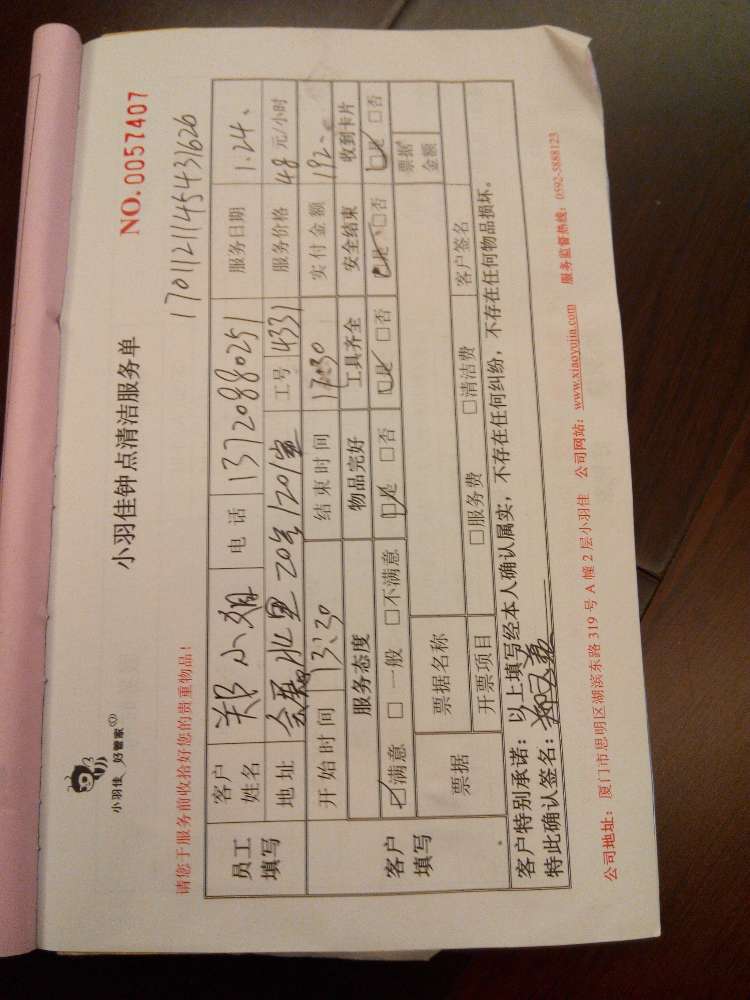 小羽佳 好管家
小羽佳钟点清洁服务单
NO.0057407
17011211145431626
请您于服务前收拾好您的贵重物品！
员工填写 客户姓名 郑小姐 电话 13720880251 服务日期 1.24、
地址 会展北里20号1201室 工号 14331 服务价格 48 元/小时
客户填写 开始时间 13:30 结束时间 17:30 实付金额 192
服务态度 物品完好 工具齐全 安全结束 收到卡片
☑满意 □一般 □不满意 ☑是 □否 ☑是 □否 ☑是 □否 ☑是 □否
票据 票据名称 票据金额
开票项目 □服务费 □清洁费 客户签名
客户特别承诺：以上填写经本人确认属实，不存在任何纠纷，不存在任何物品损坏。
特此确认签名：
公司地址：厦门市思明区湖滨东路319号A幢2层小羽佳 公司网站：www.xiaoyujia.com 服务监督热线：0592-5888123